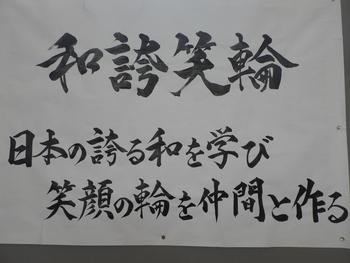 和誇笑輪
日本の誇る和を学び
笑顔の輪を仲間と作る